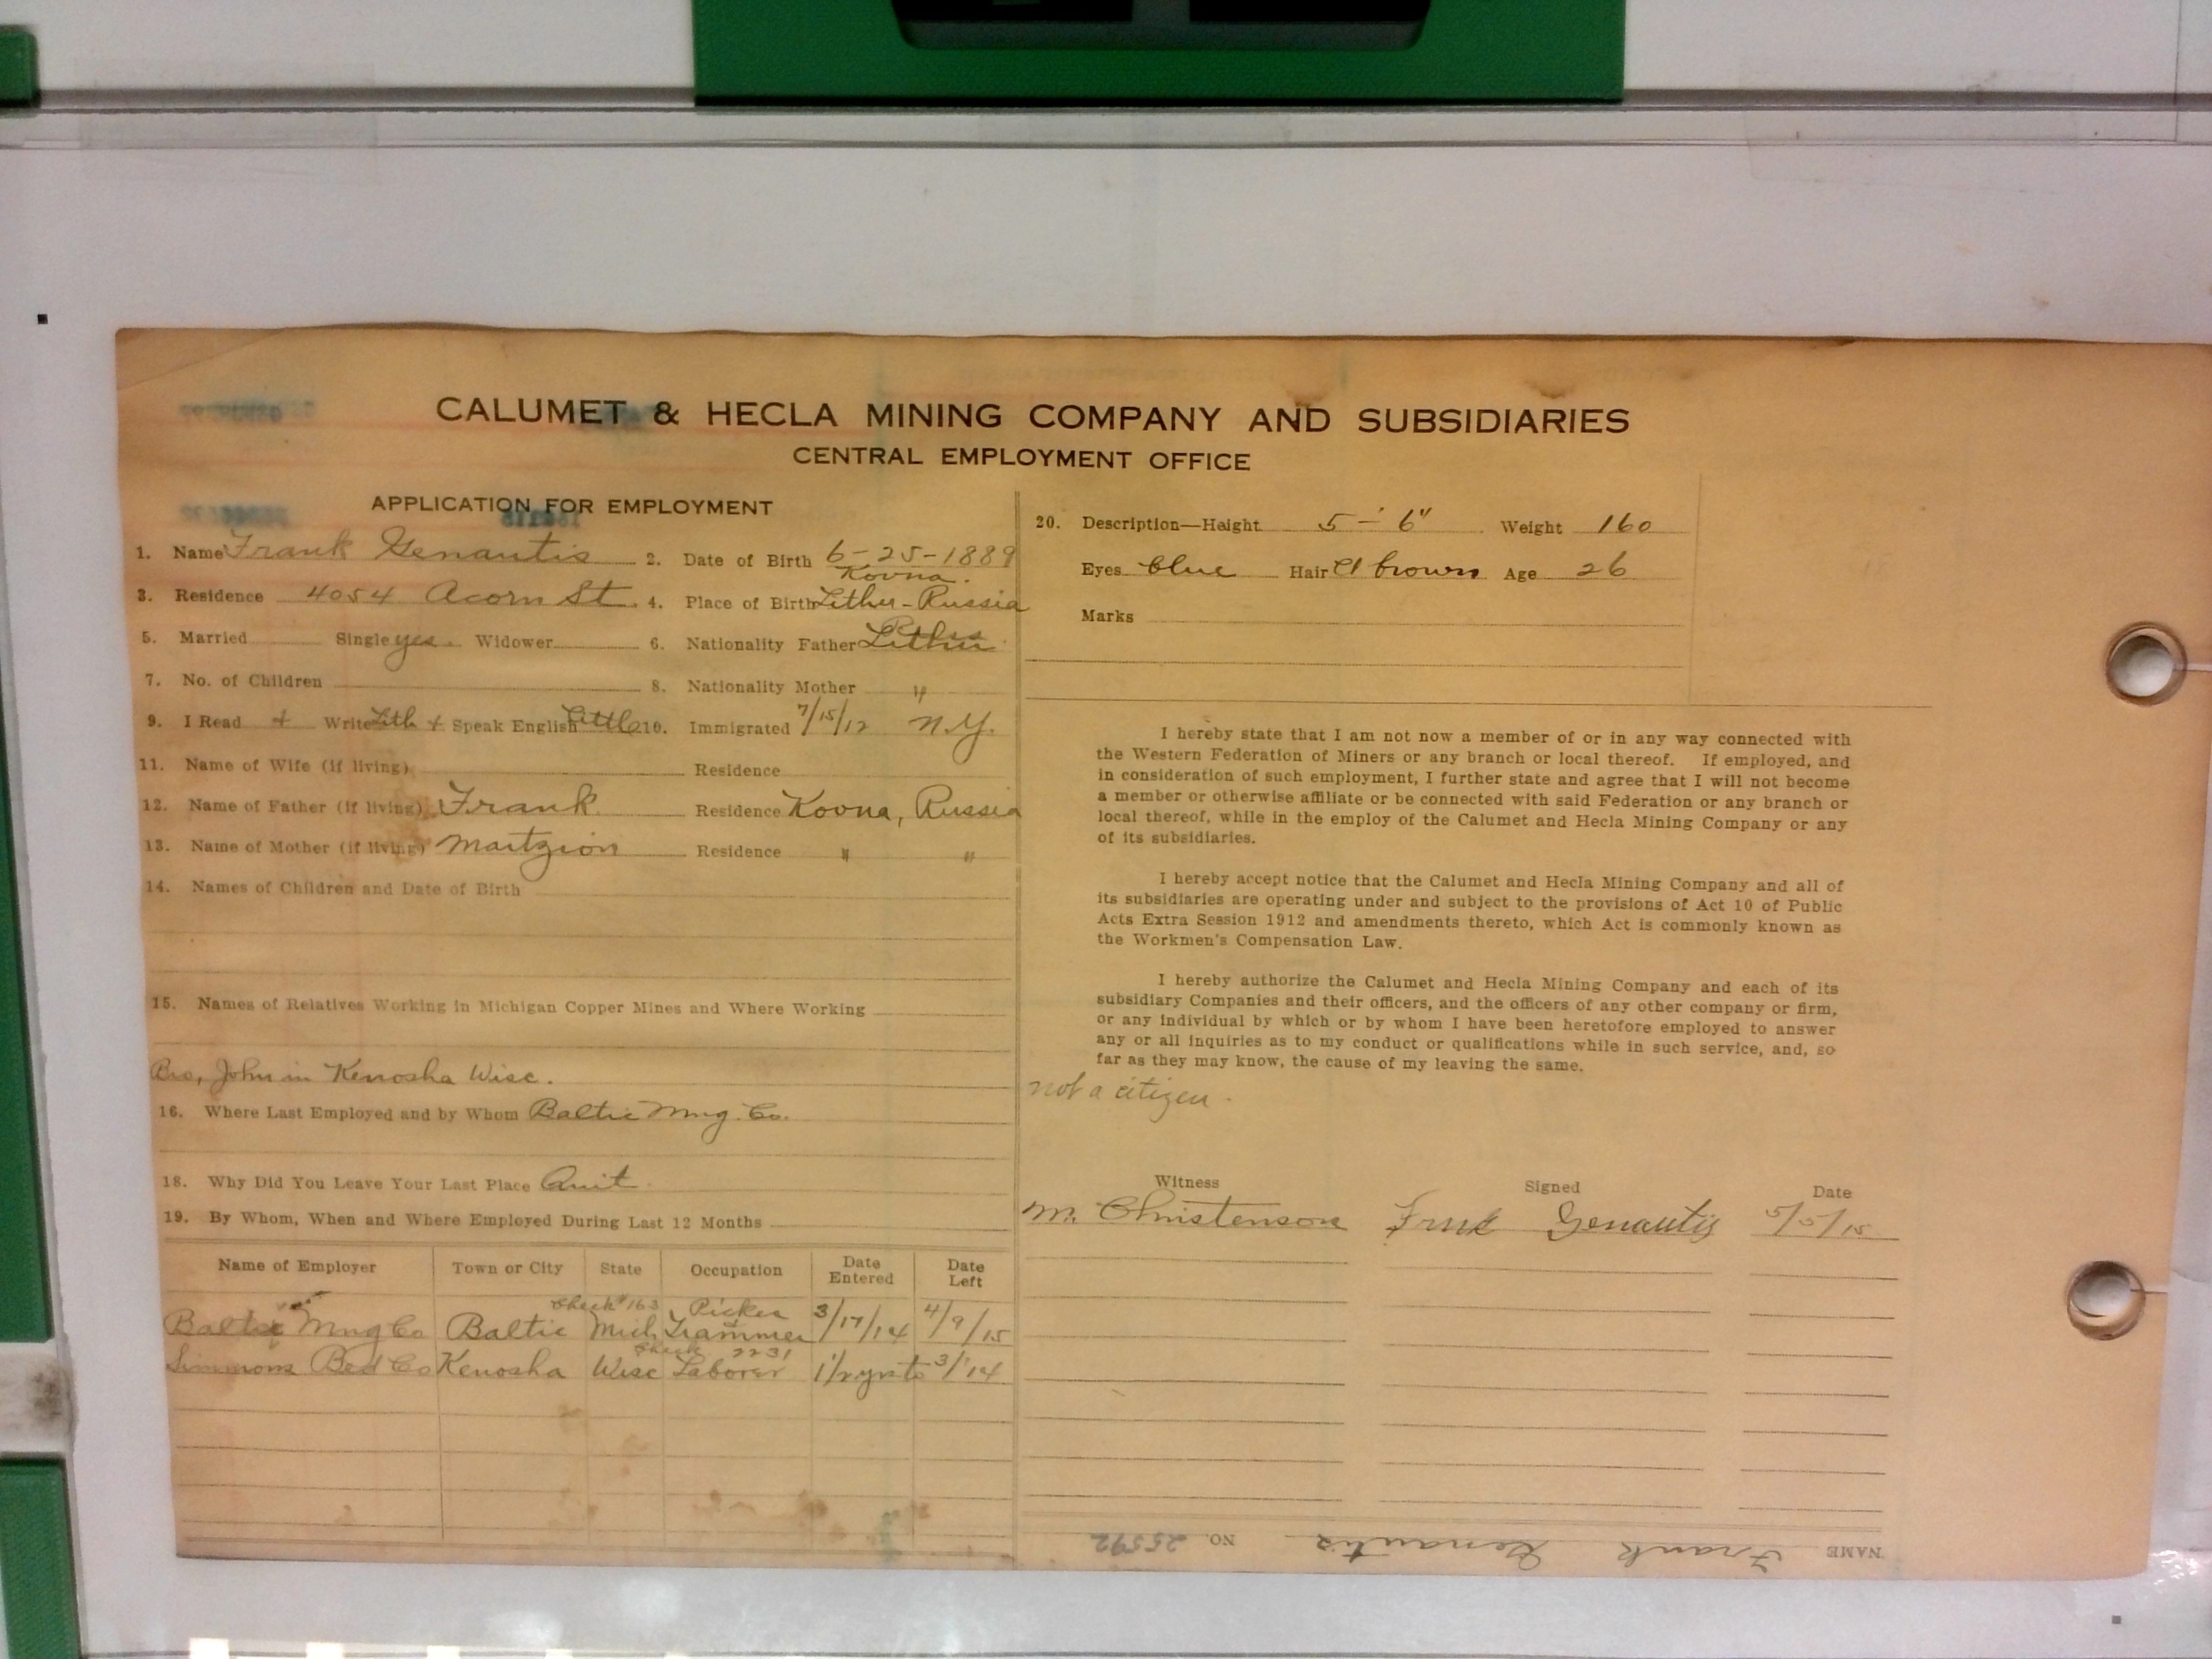 CALUMET & HECLA MINING COMPANY AND SUBSIDIARIES
CENTRAL EMPLOYMENT OFFICE
APPLICATION FOR EMPLOYMENT
1. Name Frank Genautis 2. Date of Birth 6-25-1889
Kovna.
3. Residence 4054 Acorn St. 4. Place of Birth Lithu-Russia
5. Married Single yes Widower 6. Nationality Father Lithu
7. No. of Children 8. Nationality Mother "
9. I Read + Write Lith + Speak English Little 10. Immigrated 7/15/12 N.Y.
11. Name of Wife (if living) Residence
12. Name of Father (if living) Frank Residence Kovna, Russia
13. Name of Mother (if living) Maitzion Residence " "
14. Names of Children and Date of Birth
15. Names of Relatives Working in Michigan Copper Mines and Where Working
Bro, John in Kenosha Wisc.
16. Where Last Employed and by Whom Baltic Mng. Co.
18. Why Did You Leave Your Last Place Quit
19. By Whom, When and Where Employed During Last 12 Months
Name of Employer Town or City State Occupation Date Entered Date Left
Check #163 Picker
Baltic Mng Co Baltic Mich Trammer 3/17/14 4/9/15
Check 2231
Simmons Bed Co Kenosha Wisc Laborer 1 1/2 yrs to 3/14
20. Description—Height 5-6" Weight 160
Eyes blue Hair d brown Age 26
Marks
I hereby state that I am not now a member of or in any way connected with
the Western Federation of Miners or any branch or local thereof. If employed, and
in consideration of such employment, I further state and agree that I will not become
a member or otherwise affiliate or be connected with said Federation or any branch or
local thereof, while in the employ of the Calumet and Hecla Mining Company or any
of its subsidiaries.
I hereby accept notice that the Calumet and Hecla Mining Company and all of
its subsidiaries are operating under and subject to the provisions of Act 10 of Public
Acts Extra Session 1912 and amendments thereto, which Act is commonly known as
the Workmen's Compensation Law.
I hereby authorize the Calumet and Hecla Mining Company and each of its
subsidiary Companies and their officers, and the officers of any other company or firm,
or any individual by which or by whom I have been heretofore employed to answer
any or all inquiries as to my conduct or qualifications while in such service, and, so
far as they may know, the cause of my leaving the same.
not a citizen.
Witness Signed Date
M. Christenson Frnk Genautis 5/5/15
NAME Frank Genautis NO. 25592